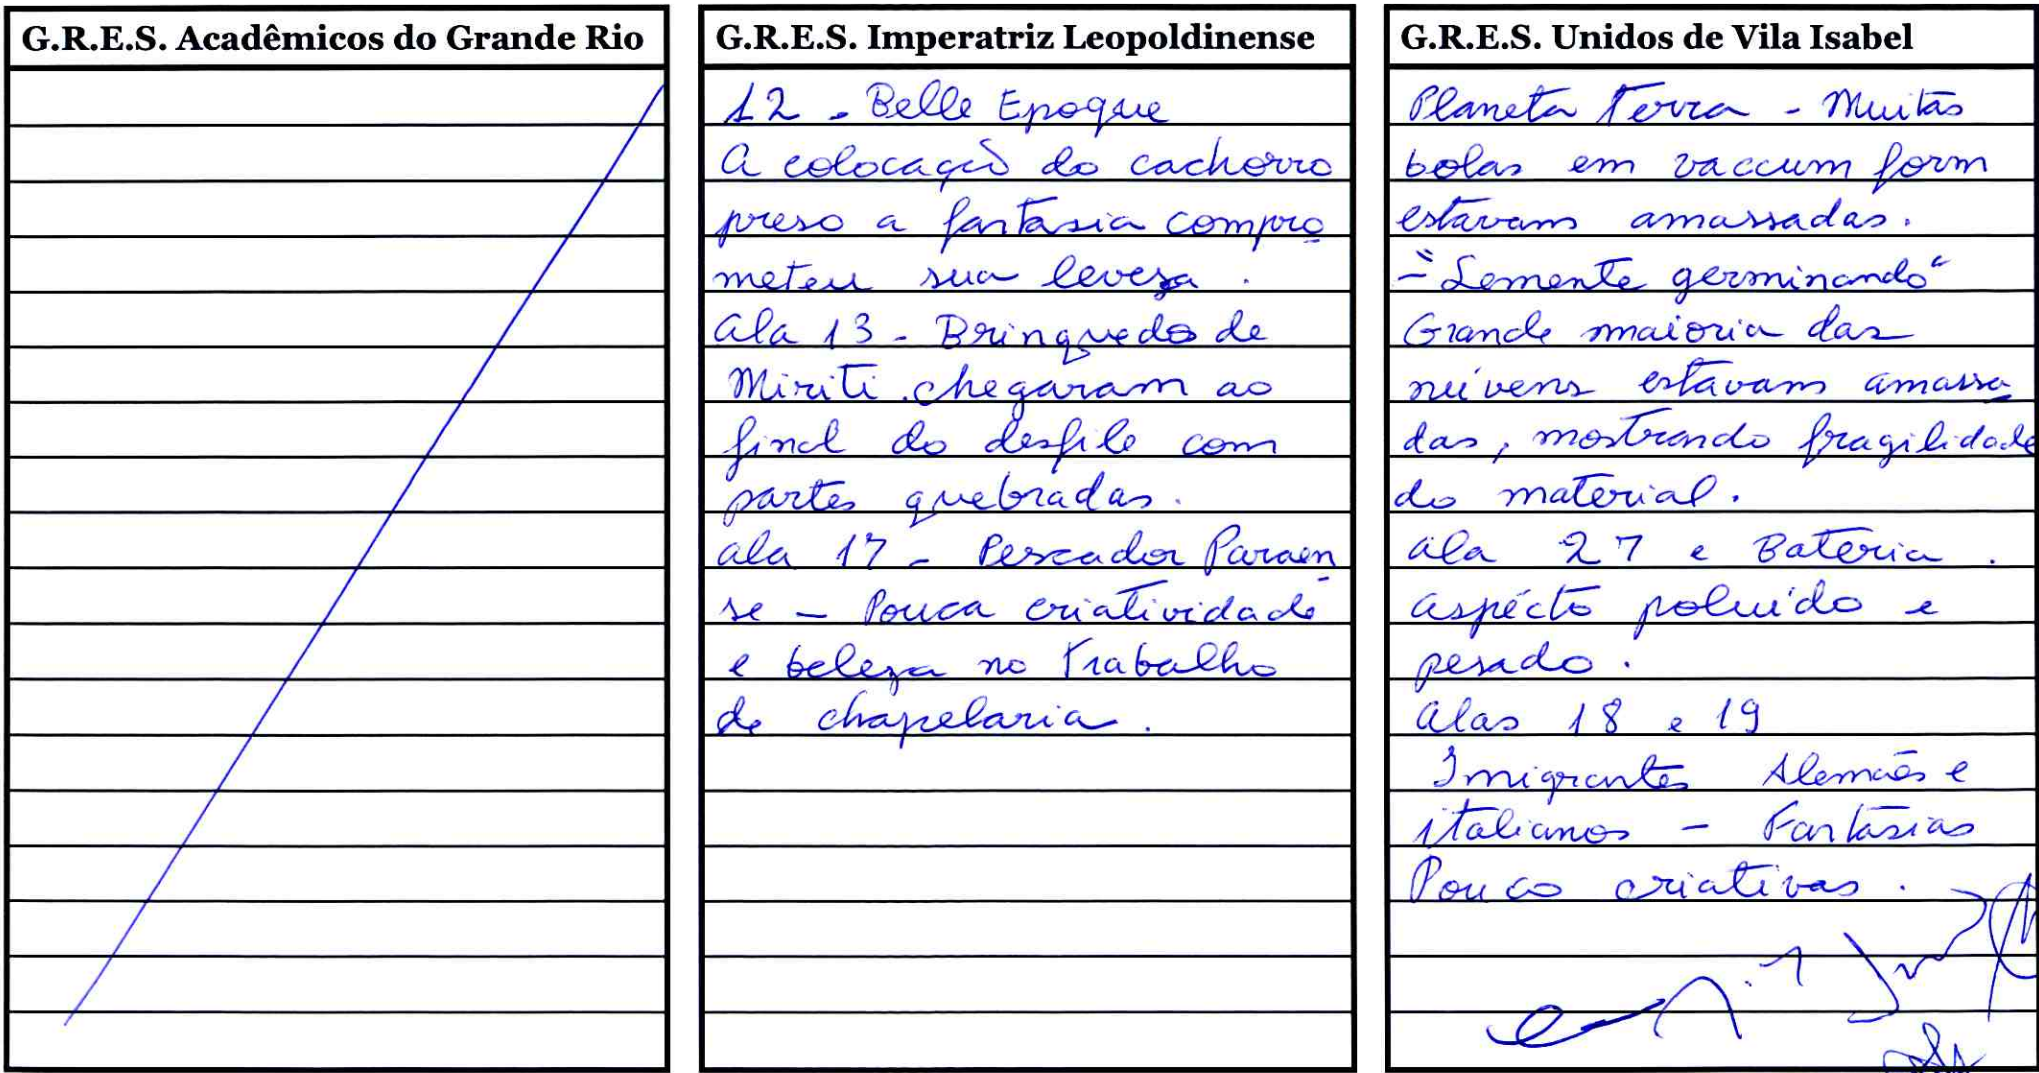 G.R.E.S. Acadêmicos do Grande Rio
G.R.E.S. Imperatriz Leopoldinense
12 - Belle Epoque
A colocação do cachorro
preso a fantasia compro
meteu sua leveza.
Ala 13 - Brinquedo de
Miriti. chegaram ao
final do desfile com
partes quebradas.
ala 17 - Pescador Paraen
se - Pouca criatividade
e beleza no trabalho
de chapelaria.
G.R.E.S. Unidos de Vila Isabel
Planeta Terra - Muitas
bolas em vaccum form
estavam amassadas.
- "Semente germinando"
Grande maioria das
núvens estavam amassa
das, mostrando fragilidade
do material.
ala 27 e Bateria.
aspécto poluído e
pesado.
alas 18 e 19
Imigrantes Alemães e
italianos - Fantasias
Pouco criativas.